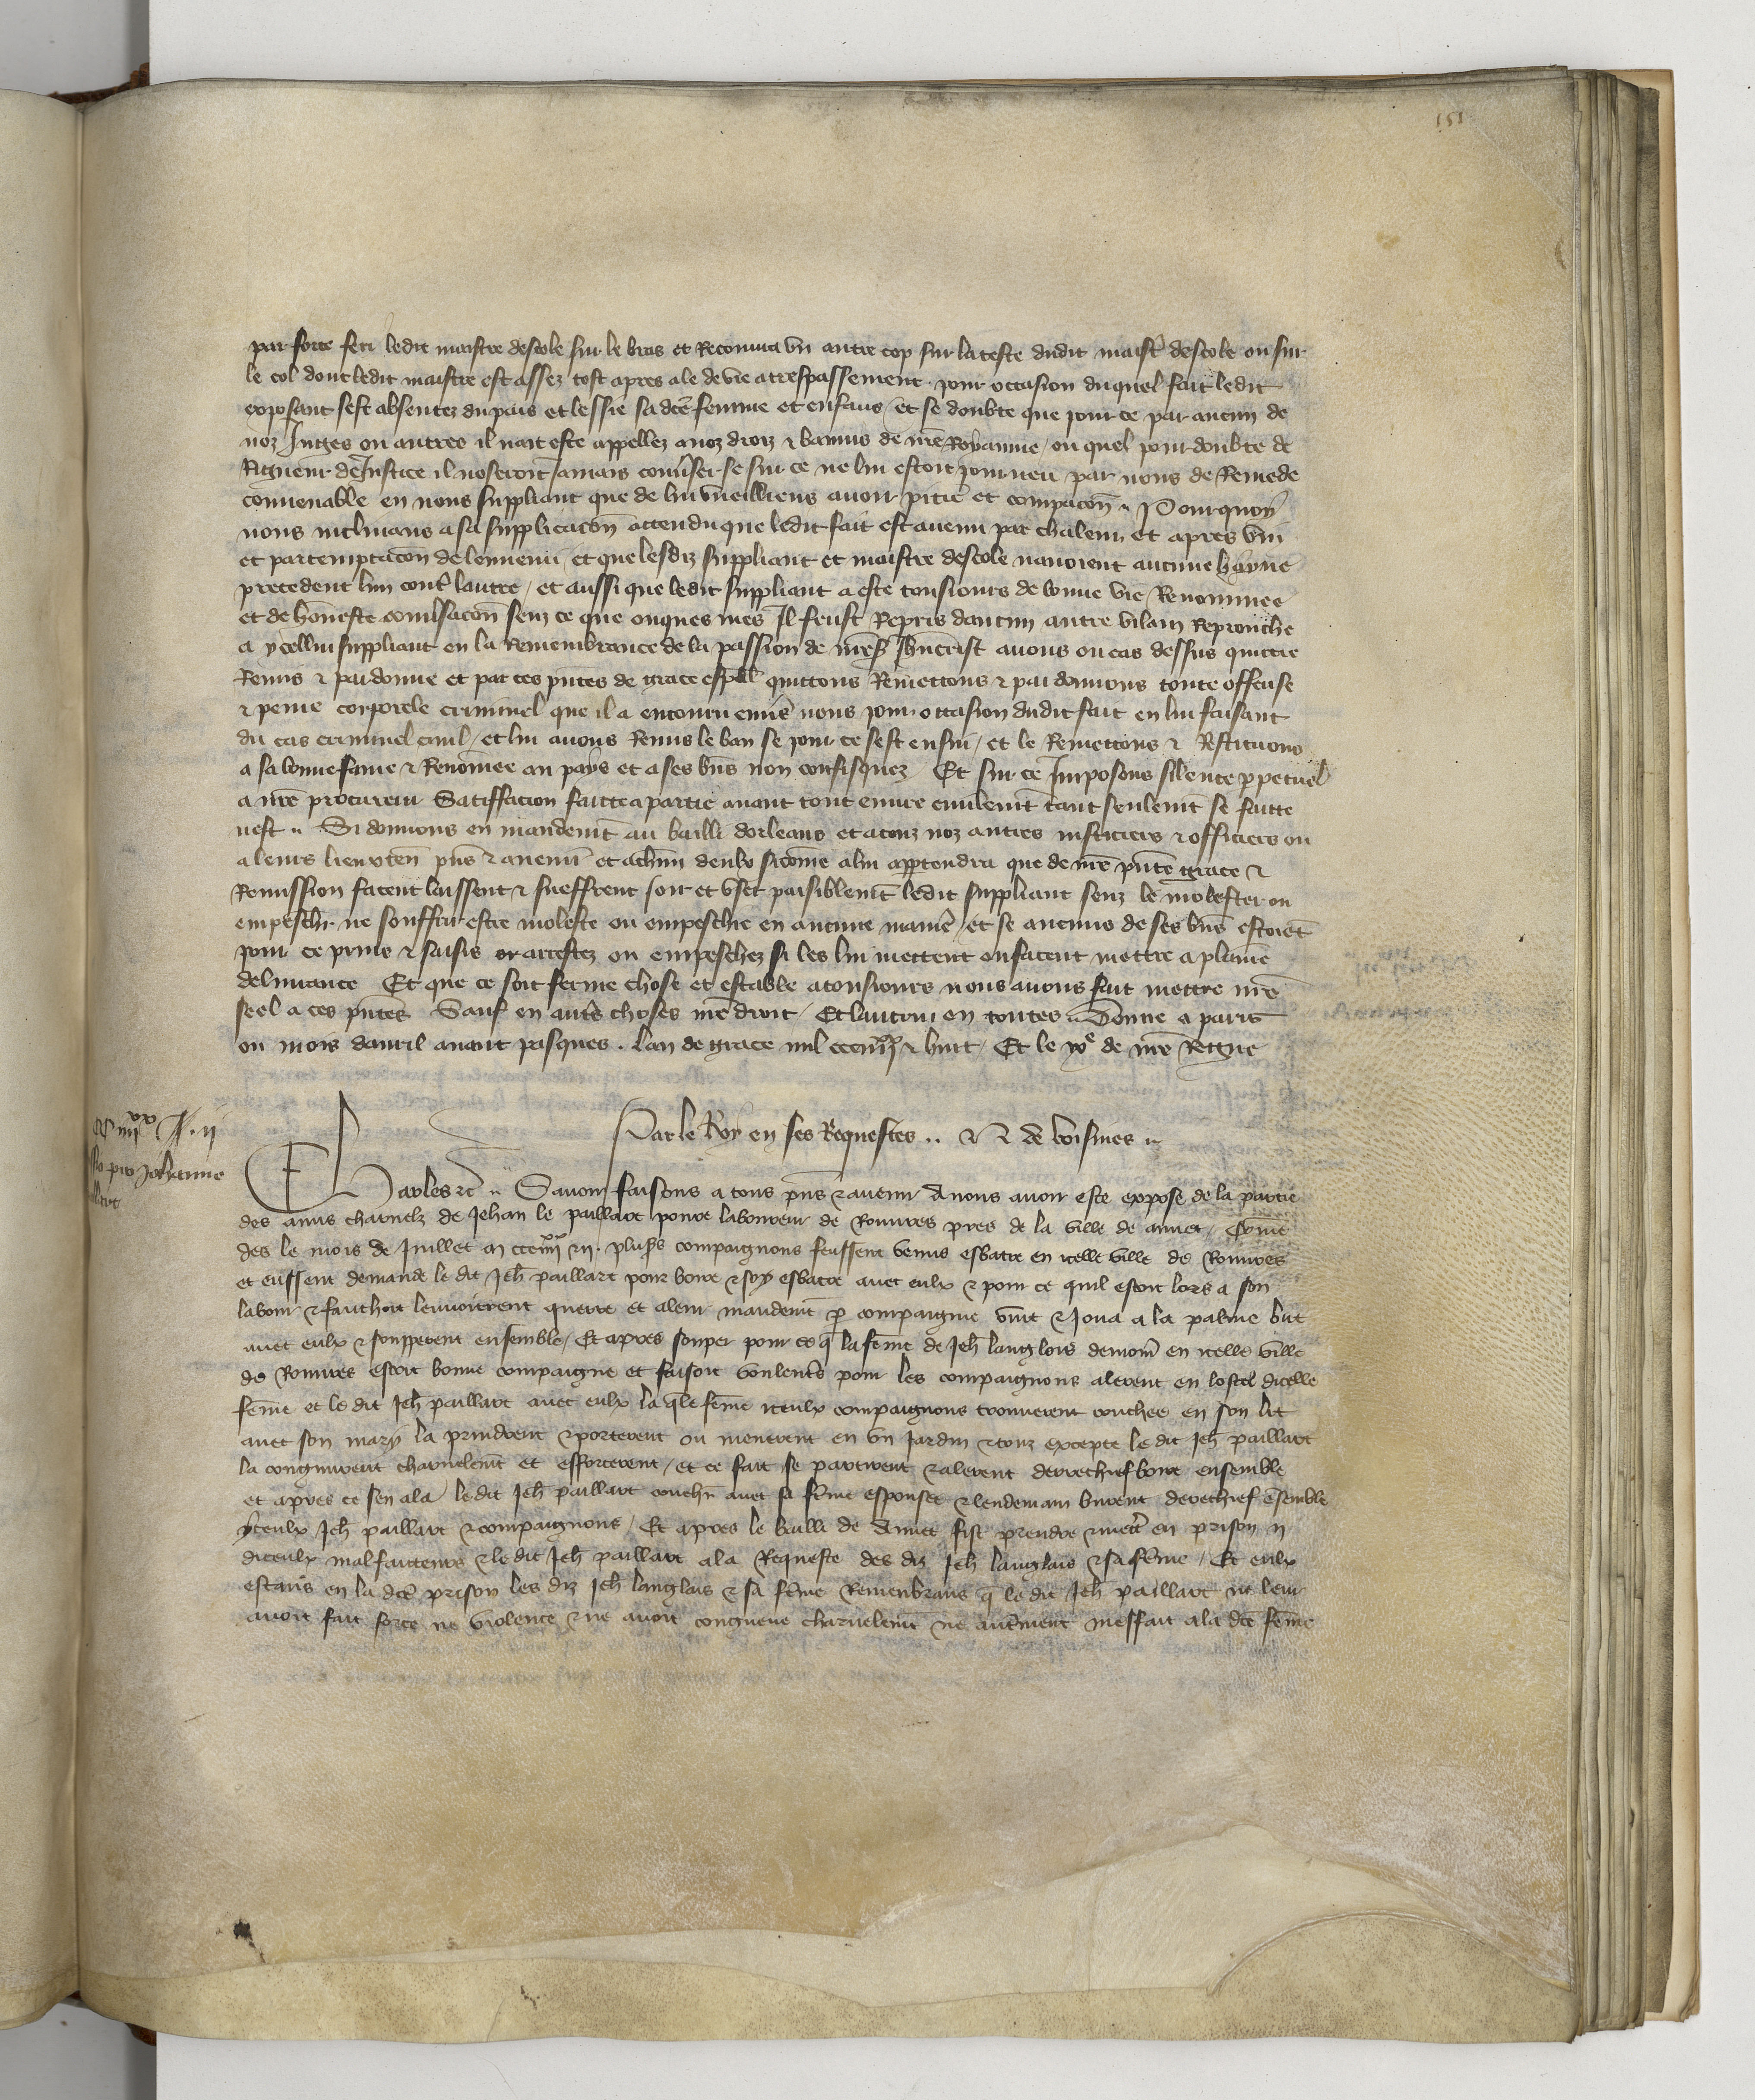 151
par force feri ledit maistre descole sur le bras et Recouura vn autre cop sur la teste dudit maistr̄ descole ou sur
le col dont ledit maistre est assez tost apres ale de vie a trespassement . pour occasion duquel fait ledit
exposant sest absentez du pais et lessie sa dcē femme et enfans / et se doubte que pour ce par aucun de
noz Juges ou autres il nait este appellez a noz droiz & bannis de nr̄e Royaume / ou quel pour doubte de
Rigueur de Justice il noseroit Jamais conũser se sur ce ne lui estoit pourueu par nous de Remede
conuenable en nous suppliant que de lui vueilliens auoir pitie et compacōn .. Pourquoy
nous inclinans a sa supplicacōn attendu que ledit fait est auenu par chaleur et apres vin
et par temptacōn de lennemi / et que lesdiz suppliant et maistre descole nauoient aucune hayne
precedent lun cont̄ lautre / et aussi que ledit suppliant a este tousiours de bonne vie Renommee
et de hōneste conũsacōn senz ce que onques mes Il feust Repris daucun autre vilain Reprouche
a ycellui suppliant en la Remembrance de la passion de nr̄es̄ Jhūcrist auons ou cas dessus quictie
Remis & pardonne et par ces pn̄tes de grace esp̄al quittons Remettons & pardonnons toute offense
& peine corporele criminel que il a encouru enũs nous pour occasion dudit fait en lui faisant
du cas criminel ciuil / et lui auons Remis le ban se pour ce sest ensui / et le Remettons & Restituons
a sa bonne fame & Renōmee au pays et a ses bn̄s non confisquez Et sur ce Imposons silence ppetuel
a nr̄e procureur Satiffacion faicte a partie auant tout euure ciuilemēt tant seulemēt se faicte
nest .. Si donnons en mandemēt au bailli dorleans et a touz noz autres iusticiers & officiers ou
a leurs lieuxten̄ pn̄s & auenir et a chūn deulx sicōme a lui app̄tendra que de nr̄e pn̄te grace &
Remission facent laissent & sueffrent Joir et vser paisiblemēt ledit suppliant senz le molester ou
empeschr̄ ne souffrir estre moleste ou empeschie en aucune manier̄ / et se aucuns de ses bn̄s estoiēt
pour ce prins & saisis or arrestez ou empeschez si les lui mettent ou facent mettre a plaine
deliurance Et que ce soit ferme chose et estable a tousiours nous auons fait mettre nr̄e
seel a ces pn̄tes Sauf en autr̄s choses nr̄e droit / Et lautrui en toutes .. Donne a paris
ou mois dauril auant pasques . lan de grace mil ccciiii xx & huit / Et le ixe de nr̄e Regne
Par le Roy en ses Requestes .. & de voisines ..
Charles &c̄ .. Sauoir faisons a tous pn̄s & auenir A nous auoir este expose de la partie
des amis charnelz de Jehan le paillart poure laboureur de Rouures pres de la ville de annet / Cōme
des le mois de Juillet iii xx & ii . plus̄s compaignons feussent venus esbatre en icelle ville de Rouures
et eussent demande le dit Jeh̄ paillart pour boire & soy esbatre auec eulx & pour ce quil estoit lors a son
labour & fauchoit lenuoierent querre et a leur mandemēt p̄ compaignie vint & Joua a la palme but
auec eulx & soupperent ensemble / Et apres souper pour ce q̄ la fēme de Jeh̄ langlois demour̄ en icelle ville
de Rouures estoit bonne compaigne et faisoit voulent̄s pour les compaignons alerent en lostel dicelle
fēme et le dit Jeh̄ paillart auec eulx la q̄le fēme iceulx compaignons trouuerent couchee en son lit
auec son mary la prindrent & porterent ou menerent en vn Jardin & touz excepte le dit Jeh̄ paillart
la congnurent charnelemēt et efforcerent / et ce fait se partirent & alerent derrechief boire ensemble
et apres ce sen ala le dit Jeh̄ paillart couchr̄ auec sa fēme espousee & lendemain burent derechief ēsemble
yceulx Jeh̄ paillart & compaignons / Et apres le bailli de Annet fist prendre & mectr̄ en prison ii
diceulx malfaicteurs & le dit Jeh̄ paillart a la Requeste des diz Jeh̄ langlais & sa fēme / Et eulx
estans en la dcē prison les diz Jeh̄ langlais & sa fēme Remenbrans q̄ le dit Jeh̄ paillart ne leur
auoit fait force ne violence & ne auoit congneue charnelemēt ne autr̄ment meffait a la dcē fēme